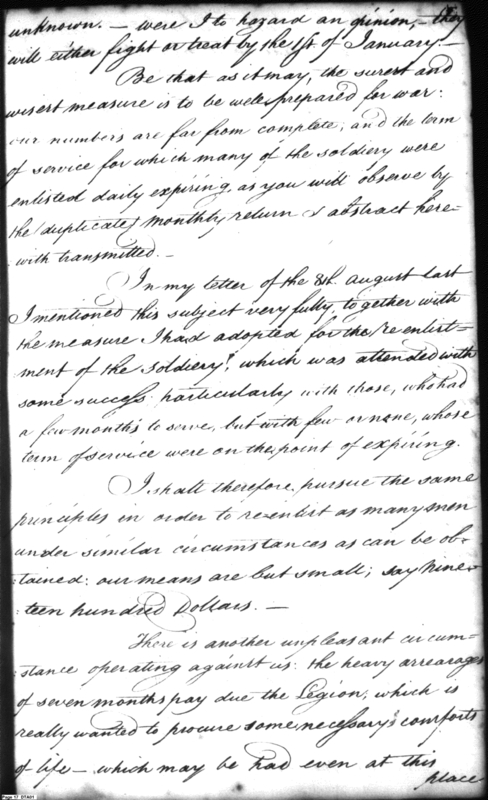 unknown. — were I to hazard an opinion, — they
will either fight or treat by the 1st of January. —
Be that as it may, the surest and
wisest measure is to be well prepared for war:
our numbers are far from complete; and the term
of service for which many of the soldiery were
enlisted daily expiring, as you will observe by
the (duplicate) monthly return & abstract here-
with transmitted. —
In my letter of the 8th. August last
I mentioned this subject very fully, together with
the measure I had adopted for the re enlist-
ment of the soldiery, which was attended with
some success particularly with those, who had
a few months to serve, but with few or none, whose
term of service were on the point of expiring.
I shall therefore pursue the same
principles in order to re-enlist as many men
under similar circumstances as can be ob-
-tained: our means are but small; say Nine-
-teen hundred Dollars. —
There is another unpleasant circum-
-stance operating against us: the heavy arrearages
of seven months pay due the Legion, which is
really wanted to procure some necessary comforts
of life — which may be had even at this
place